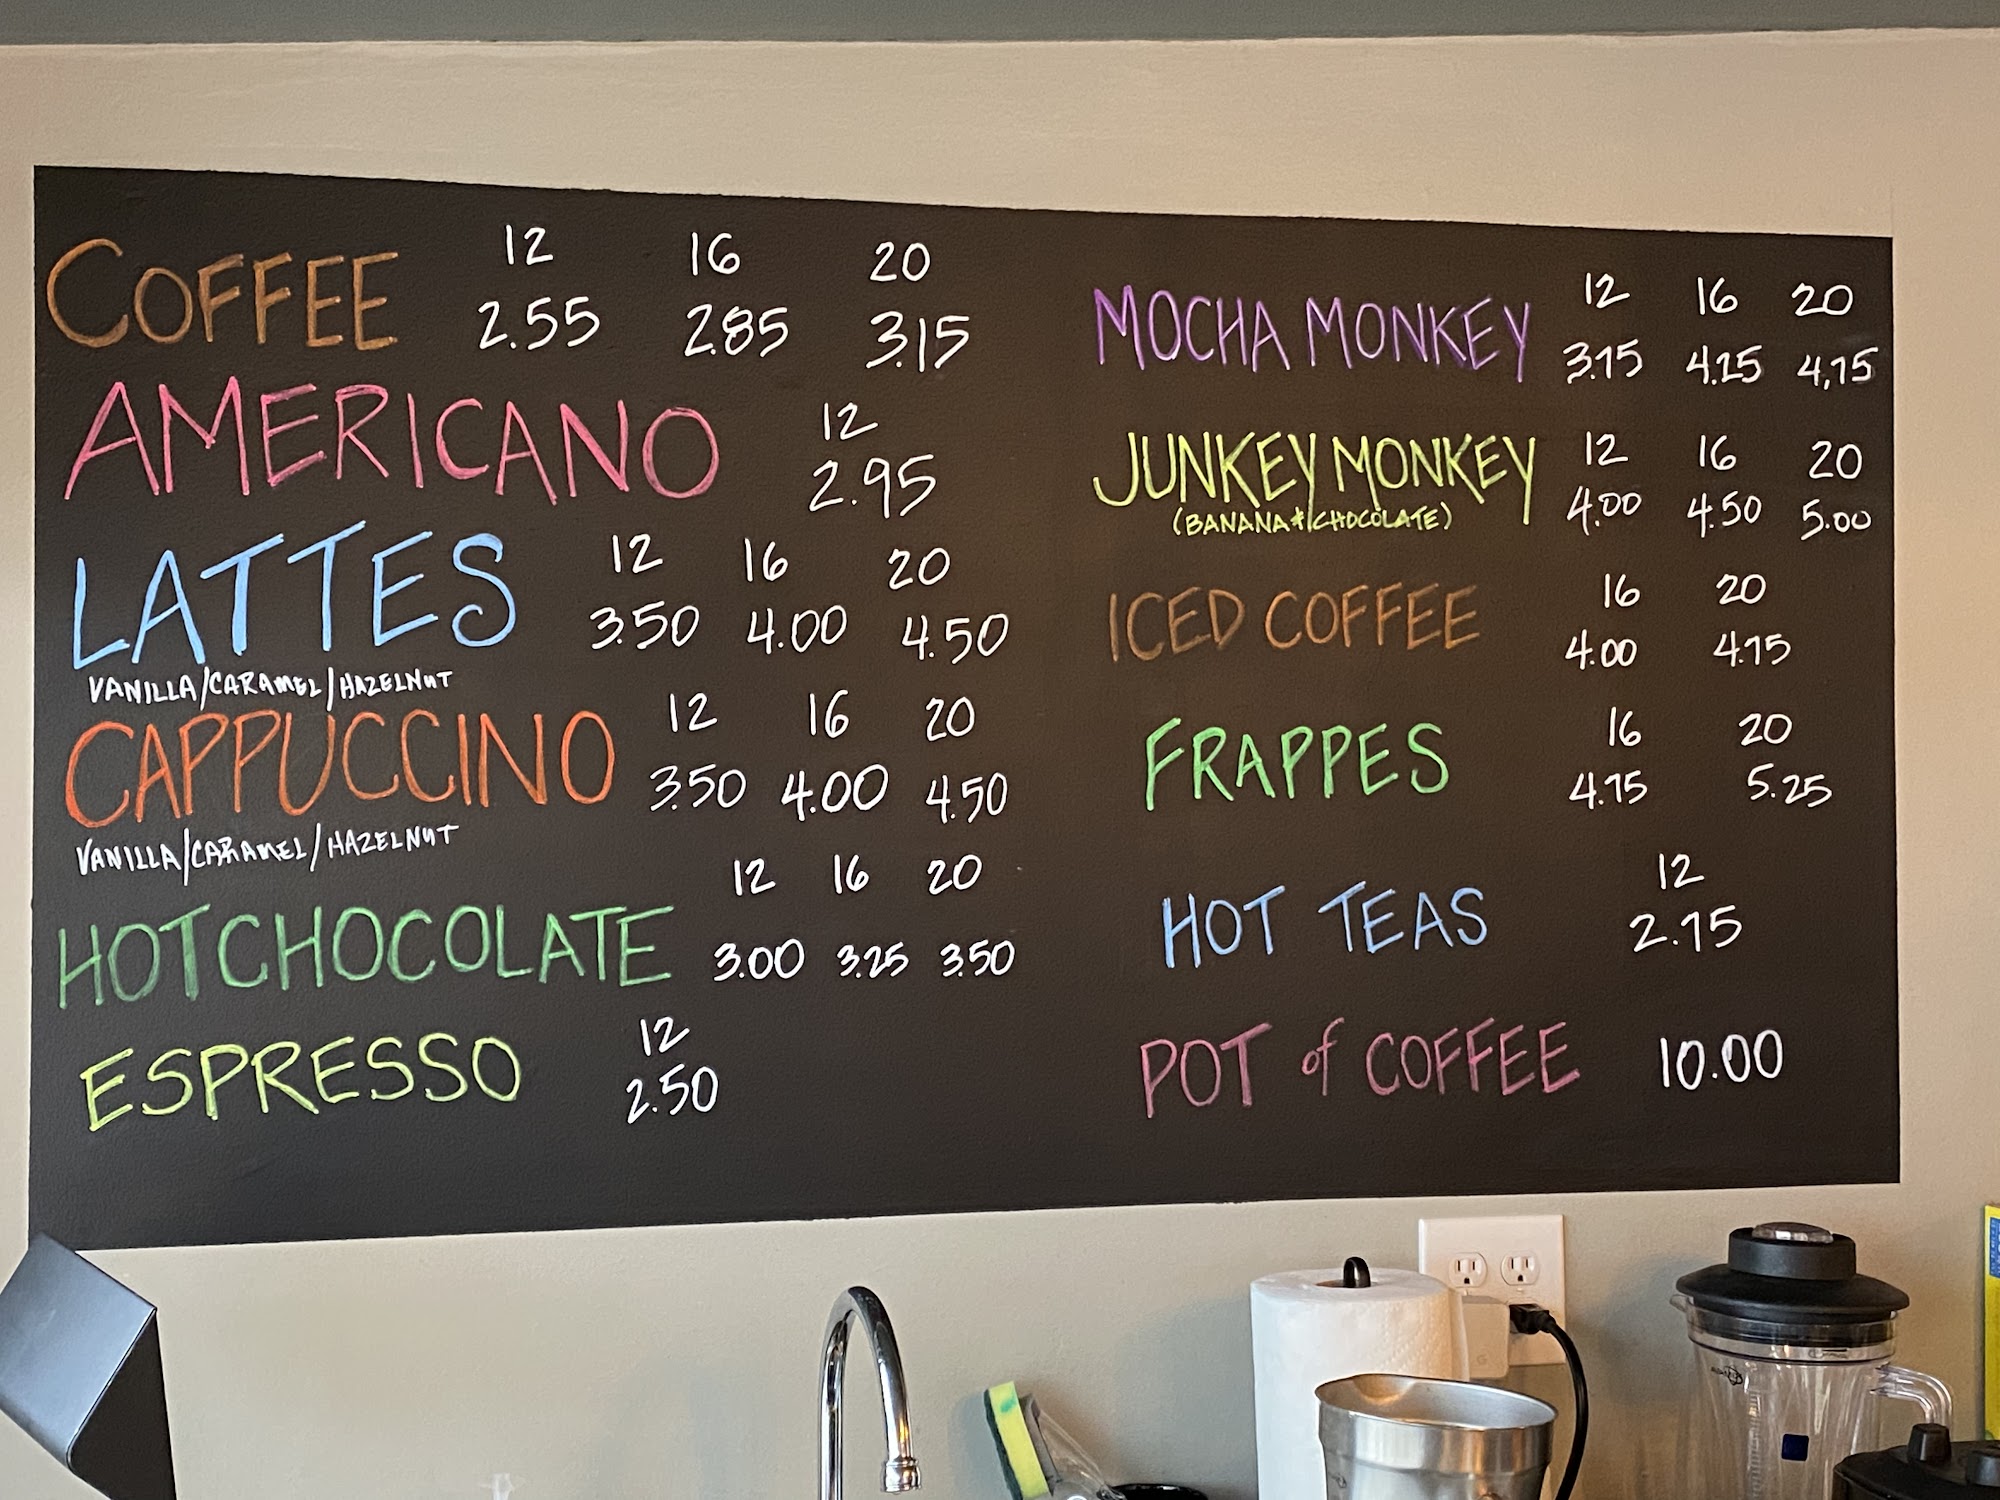 COFFEE 12 16 20
2.55 2.85 3.15
AMERICANO 12
2.95
LATTES 12 16 20
3.50 4.00 4.50
VANILLA/CARAMEL/HAZELNUT
CAPPUCCINO 12 16 20
3.50 4.00 4.50
VANILLA/CARAMEL/HAZELNUT
HOT CHOCOLATE 12 16 20
3.00 3.25 3.50
ESPRESSO 12
2.50
MOCHA MONKEY 12 16 20
3.75 4.25 4.75
JUNKEY MONKEY 12 16 20
(BANANA + CHOCOLATE) 4.00 4.50 5.00
ICED COFFEE 16 20
4.00 4.75
FRAPPES 16 20
4.75 5.25
HOT TEAS 12
2.75
POT of COFFEE 10.00